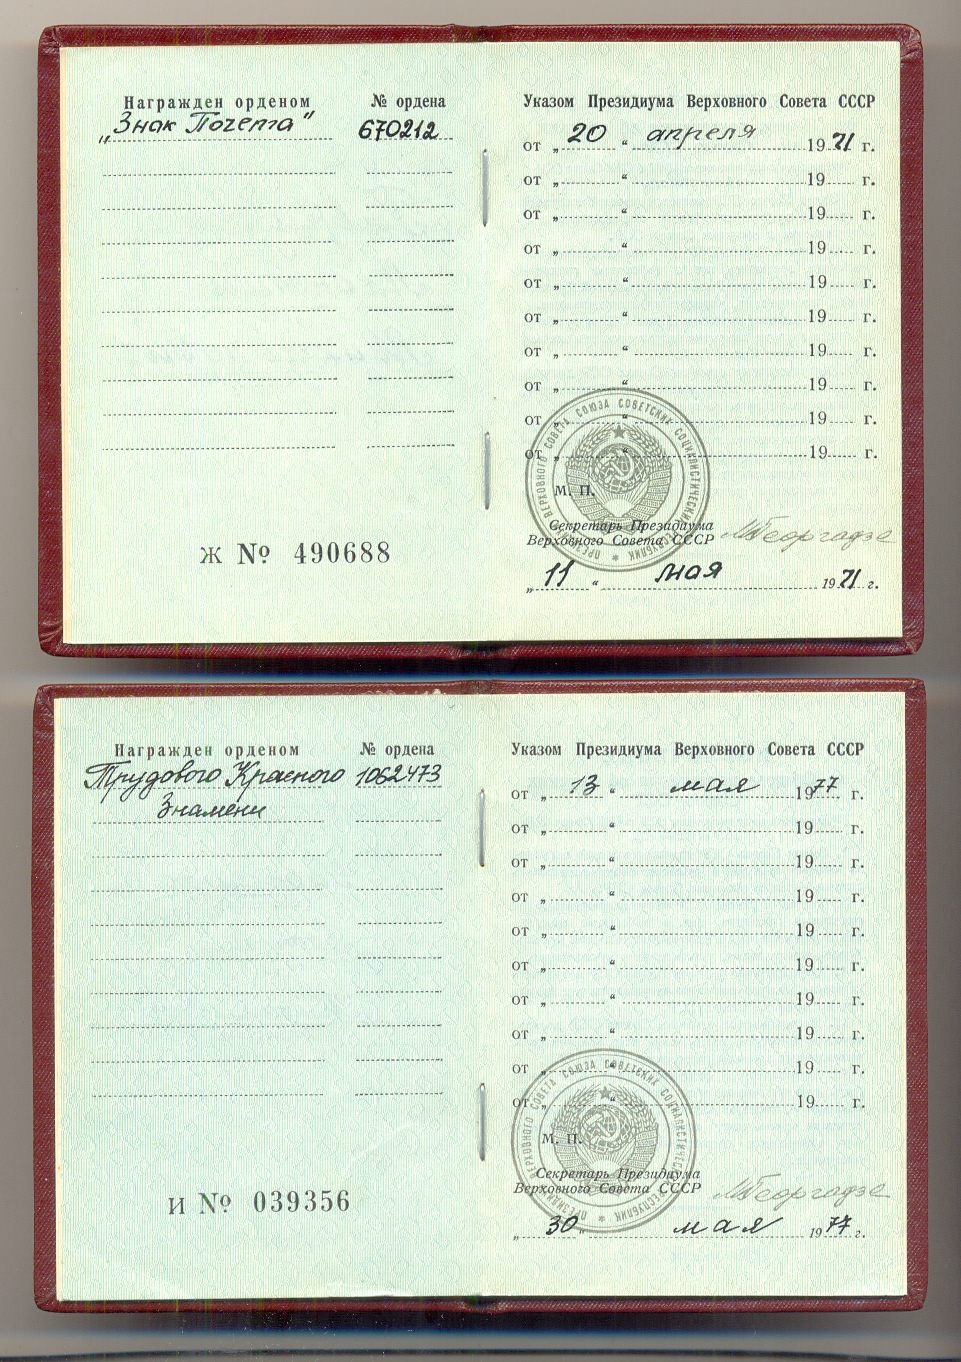 Награжден орденом № ордена
„Знак Почета" 670212
Ж № 490688
Указом Президиума Верховного Совета СССР
от „ 20 “ апреля 1971 г.
от „ “ 19 г.
от „ “ 19 г.
от „ “ 19 г.
от „ “ 19 г.
от „ “ 19 г.
от „ “ 19 г.
от „ “ 19 г.
от „ “ 19 г.
от „ “ 19 г.
ПРЕЗИДИУМ ВЕРХОВНОГО СОВЕТА СОЮЗА СОВЕТСКИХ СОЦИАЛИСТИЧЕСКИХ РЕСПУБЛИК
М. П.
Секретарь Президиума
Верховного Совета СССР МГеоргадзе
„ 11 “ мая 1971 г.
Награжден орденом № ордена
Трудового Красного 1062473
Знамени
И № 039356
Указом Президиума Верховного Совета СССР
от „ 13 “ мая 1977 г.
от „ “ 19 г.
от „ “ 19 г.
от „ “ 19 г.
от „ “ 19 г.
от „ “ 19 г.
от „ “ 19 г.
от „ “ 19 г.
от „ “ 19 г.
от „ “ 19 г.
ПРЕЗИДИУМ ВЕРХОВНОГО СОВЕТА СОЮЗА СОВЕТСКИХ СОЦИАЛИСТИЧЕСКИХ РЕСПУБЛИК
М. П.
Секретарь Президиума
Верховного Совета СССР МГеоргадзе
„ 30 “ мая 1977 г.